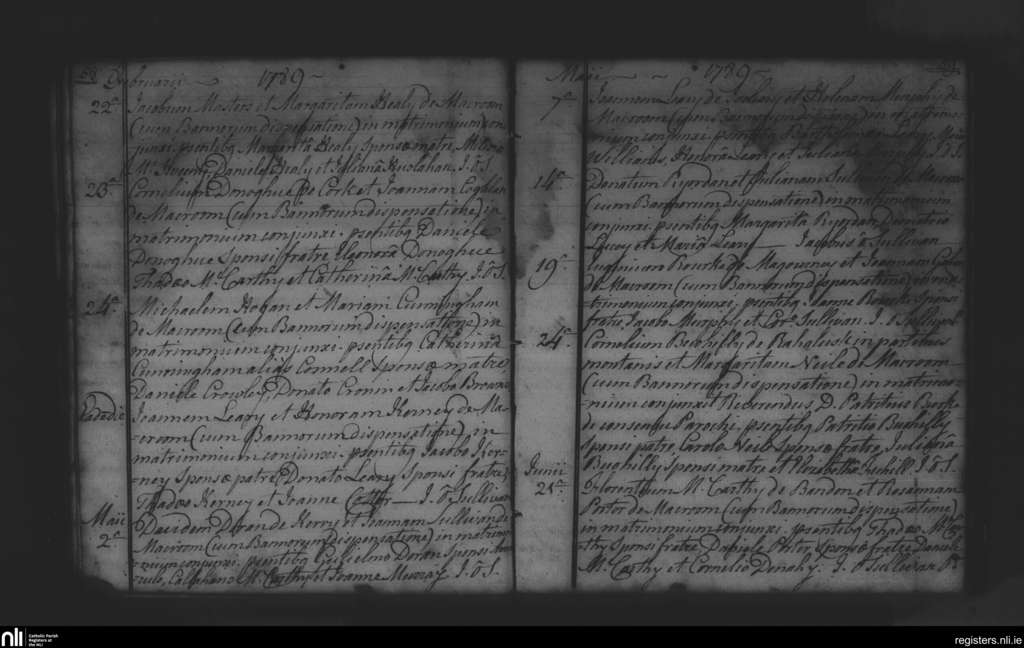 58 Februarii 1789
22.a Jacobum Masters et Margaritam Healy de Macroom
(cum Bannorum dispensatione) in matrimonium con
junxi. psentibq Margaritâ Healy Sponsæ matre,
Daniele Healy et J.ô.S.
23.a Cornelium Donoghue de Cork et Joannam Coghlan
de Macroom (cum Bannorum dispensatione) in
matrimonium conjunxi. psentibq Daniele
Donoghue Sponsi fratre, Eleonorâ Donoghue
Thadæo McCarthy et Catherinâ McCarthy. J.ô.S.
24.a Michaelem Hogan et Mariam Cuningham
de Macroom (cum Bannorum dispensatione) in
matrimonium conjunxi. psentibq Catherinâ
Cunningham aliâs Connell Sponsæ matre
Daniele Crowley, Donato Cronin et Jacobo Browne
Eadedie Joannem Leary et Honoram Kerney de Ma-
-croom (cum Bannorum dispensatione) in
matrimonium conjunxi. psentibq Jacobo Ker-
-ney Sponsæ patre, Donato Leary Sponsi fratre,
Thadæo Kerney et Joanne J. ô Sullivan
Maii Davidem Doran de Kerry et Joannam Sullivan de
2.a Macroom (cum Bannorum dispensatione) in matrimo-
-nium conjunxi. psentibq Gulielmo Doran Sponsi
McCarthy et Joanne Murray J.ô.S.
Maii 1789
7.a Joannem Leary de et Helenam de
Macroom (cum Bannorum dispensatione) in matrimo-
-nium conjunxi. psentibq Bartholomæo Leary,
Williams, Honorâ Leary et J.ô.S.
14.a Donatum Ryordan et Julianam Sullivan de Macroom
(cum Bannorum dispensatione) in matrimonium
conjunxi. psentibq Margarita Ryordan, Dematio
et Mariâ Leary Jacobus ô Sullivan
19.a Eugenium Rourke de et Joannam
de Macroom (cum Bannorum dispensatione) in ma-
-trimonium conjunxi. psentibq Joanne Rourke Sponsi
fratre, Jacobo Murphy et Sullivan. J. ô Sullivan
24.a Cornelium Buohilly de in partibus
montanis et Margaritam Neile de Macroom
(cum Bannorum dispensatione) in matrimo-
-nium conjunxit Reverendus D. Patritius Burke
de consensu Parochi, psentibq Patritio Buohilly
Sponsi patre, Carolo Neile Sponsæ fratre, Julianâ
Buohilly Sponsi matre et Elizabethâ J.ô.S.
Junii
21.a Florentium McCarthy de Bandon et Rosannam
Porter de Macroom (cum Bannorum dispensatione)
in matrimonium conjunxi. psentibq Thadæo McCar-
thy Sponsi fratre, Daniele Porter, Sponsæ fratre, Daniele
McCarthy et Cornelio Denahy. J. ô Sullivan
nli Catholic Parish
Registers at
the NLI
registers.nli.ie